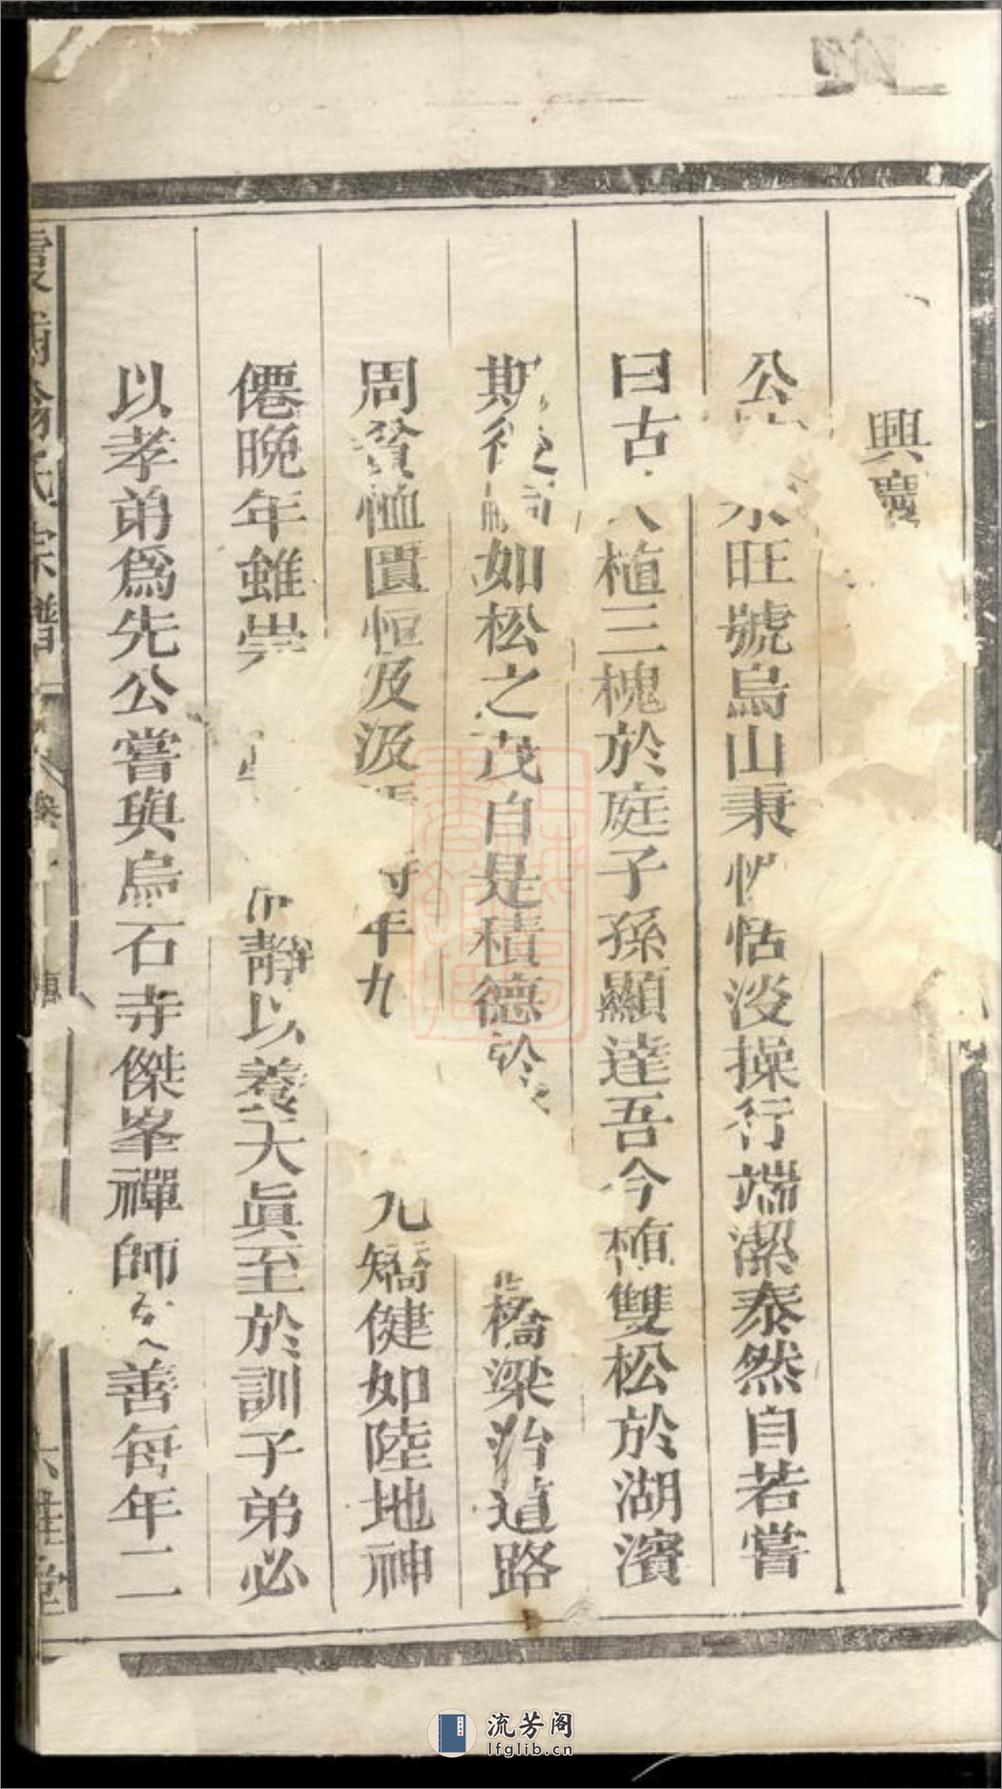 興慶
公 永旺號烏山秉性恬淡操行端潔泰然自若嘗
曰古人植三槐於庭子孫顯達吾今植雙松於湖濱
期後嗣如松之茂自是積德於 橋梁治道路
周貧恤匱恒及汲 年九 九矯健如陸地神
僊晚年雖崇 靜以養天真至於訓子弟必
以孝弟爲先公嘗與烏石寺傑峯禪師 善每年二
翁氏宗譜 卷十 傳 六桂堂
流芳阁
lfglib.cn